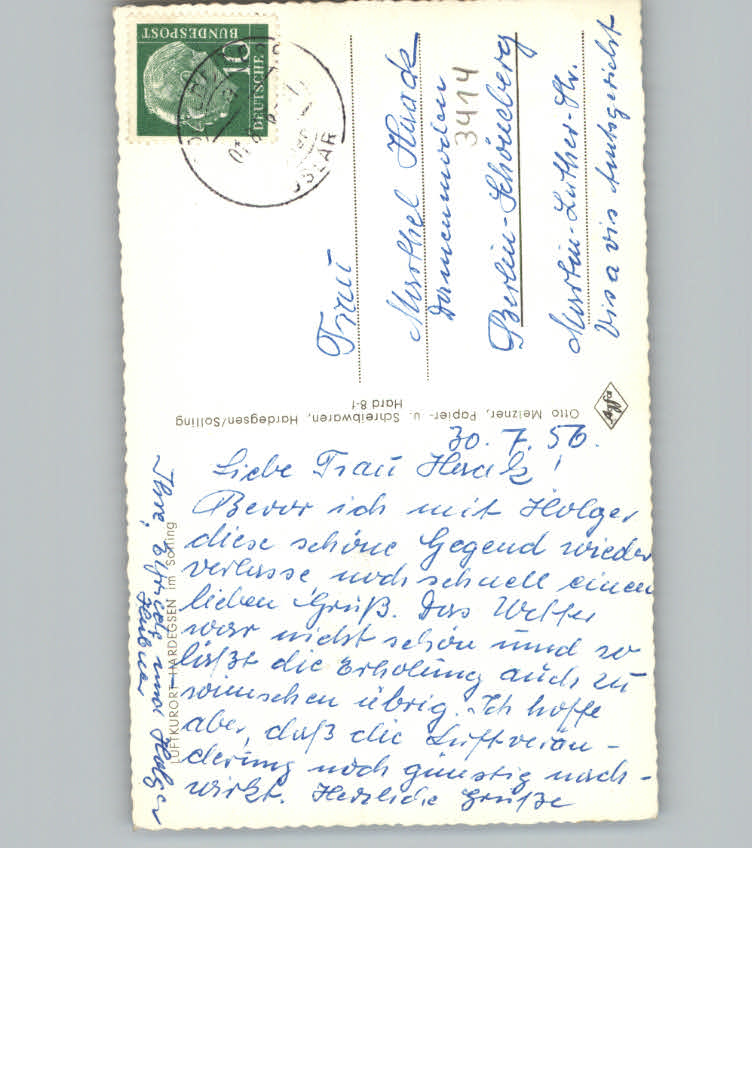 30. 7. 56.
Liebe Frau Haack!
Bevor ich mit Holger
diese schöne Gegend wieder
verlasse noch schnell einen
lieben Gruß. Das Wetter
war nicht schön und so
läßt die Erholung auch zu
wünschen übrig. Ich hoffe
aber, daß die Luftverän-
derung noch günstig nach-
wirkt. Herzliche Grüße
Ihre
und Holger
LUFTKURORT HARDEGSEN im Solling
Otto Meizner, Papier- u. Schreibwaren, Hardegsen/Solling
Hard 8-f
Agfa
Frau
Marthel Haack
Damenmoden
3414
Berlin-Schöneberg
Martin-Luther-Str.
Vis a vis Amtsgericht
DEUTSCHE
BUNDESPOST
10
USLAR